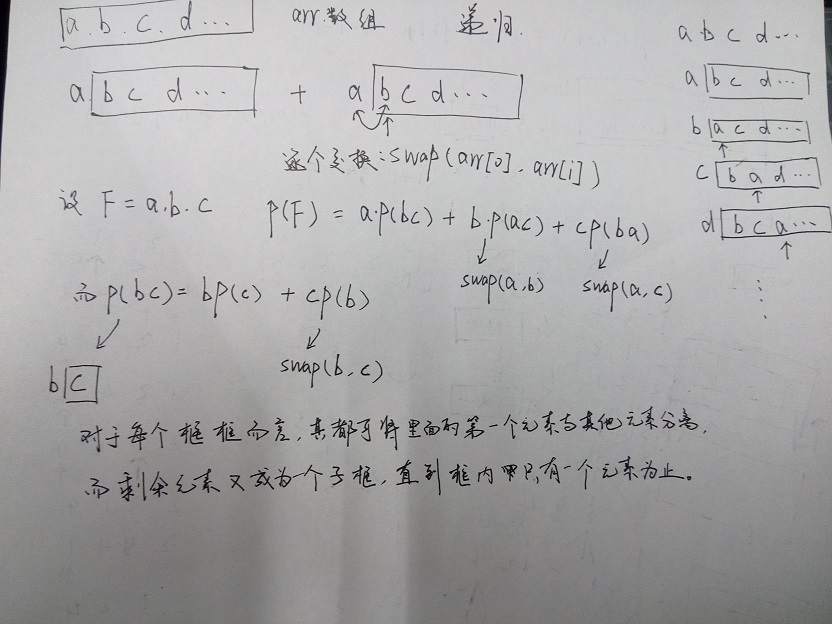 a.b.c.d... arr数组 递归.
a b c d ... + a b c d ...
逐个交换:swap(arr[0], arr[i])
设 F = a.b.c
p(F) = a.p(bc) + b.p(ac) + cp(ba)
swap(a,b) swap(a,c)
而 p(bc) = bp(c) + cp(b)
b c swap(b,c)
对于每个框框而言,其都可将里面的第一个元素与其他元素分离,
而剩余元素又成为一个子框,直到框内只有一个元素为止。
a b c d ...
a b c d ...
b a c d ...
c b a d ...
d b c a ...